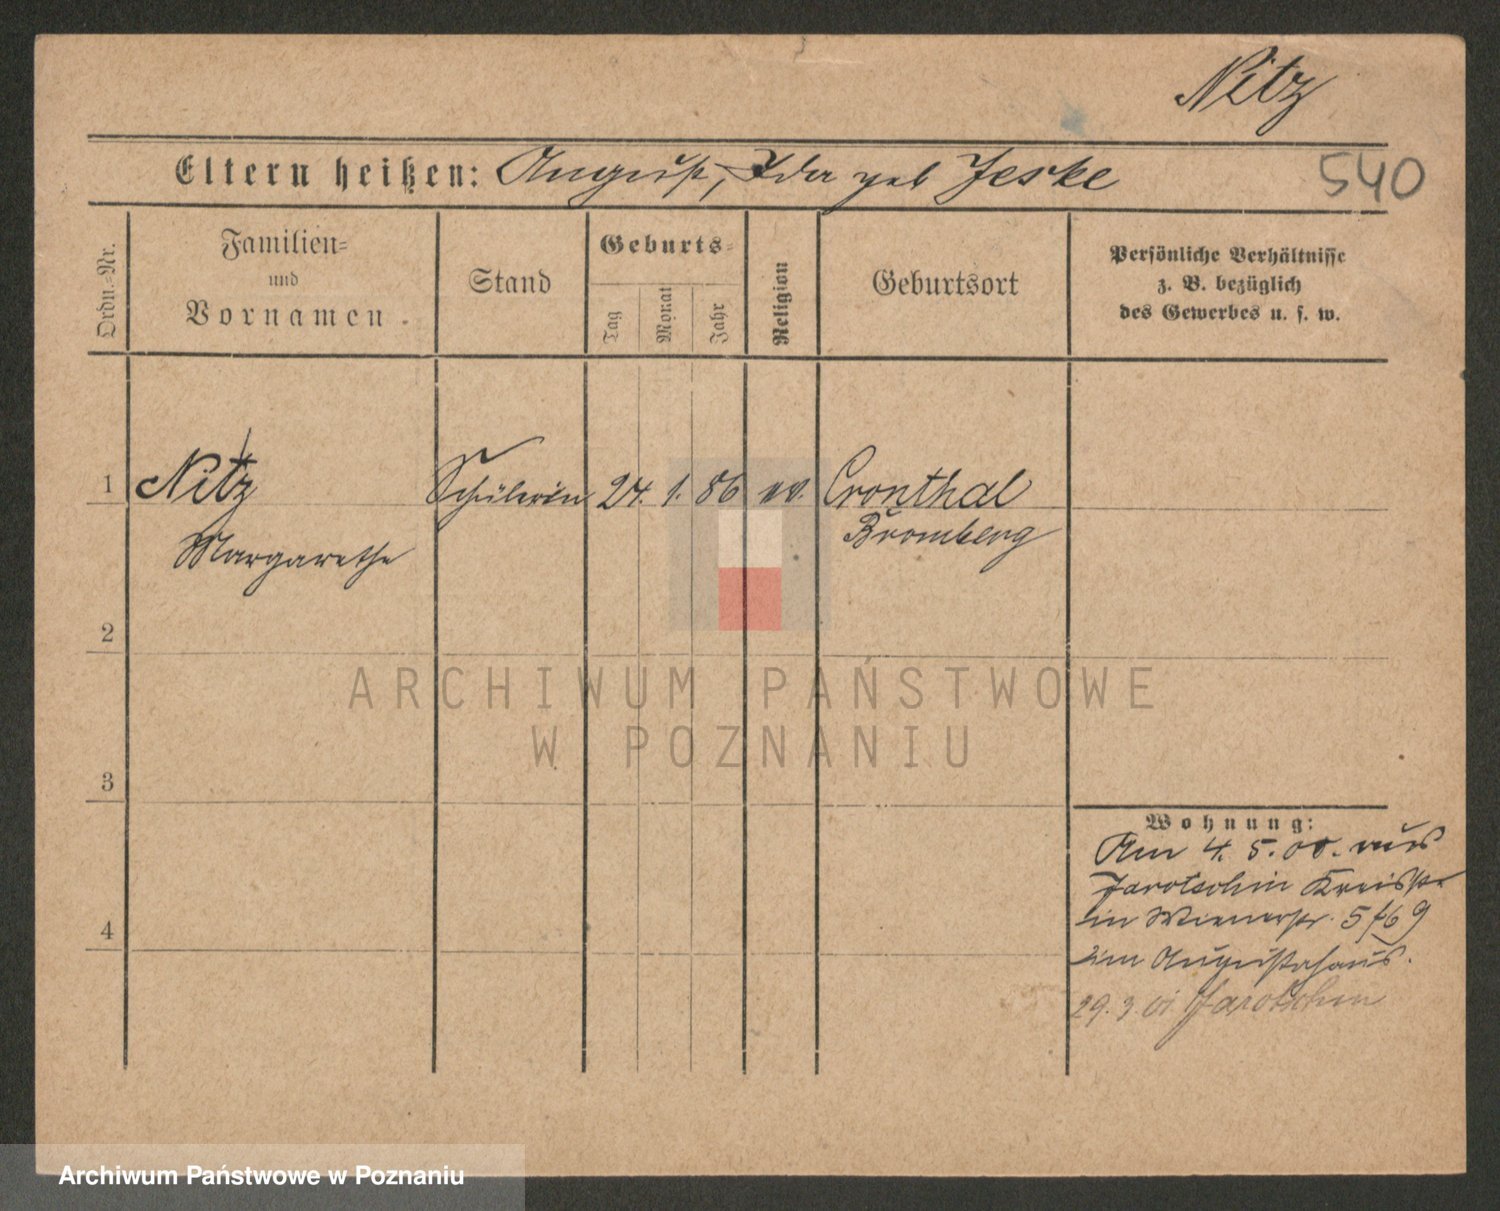 Nitz
Eltern heißen: August, Ida geb Jeske
540
Ordn.-Nr.
Familien-
und
Vornamen
Stand
Geburts-
Tag
Monat
Jahr
Religion
Geburtsort
Persönliche Verhältnisse
z. B. bezüglich
des Gewerbes u. s. w.
1 Nitz Schülerin 24. 1. 86 ev. Cronthal
Margarethe Bromberg
2
3
4
Wohnung:
Am 4. 5. 00. aus
Jarotschin Kreisstr
in Wienerstr. 5
im Augustahaus.
29. 3. 01 Jarotschin
ARCHIWUM PAŃSTWOWE
W POZNANIU
Archiwum Państwowe w Poznaniu